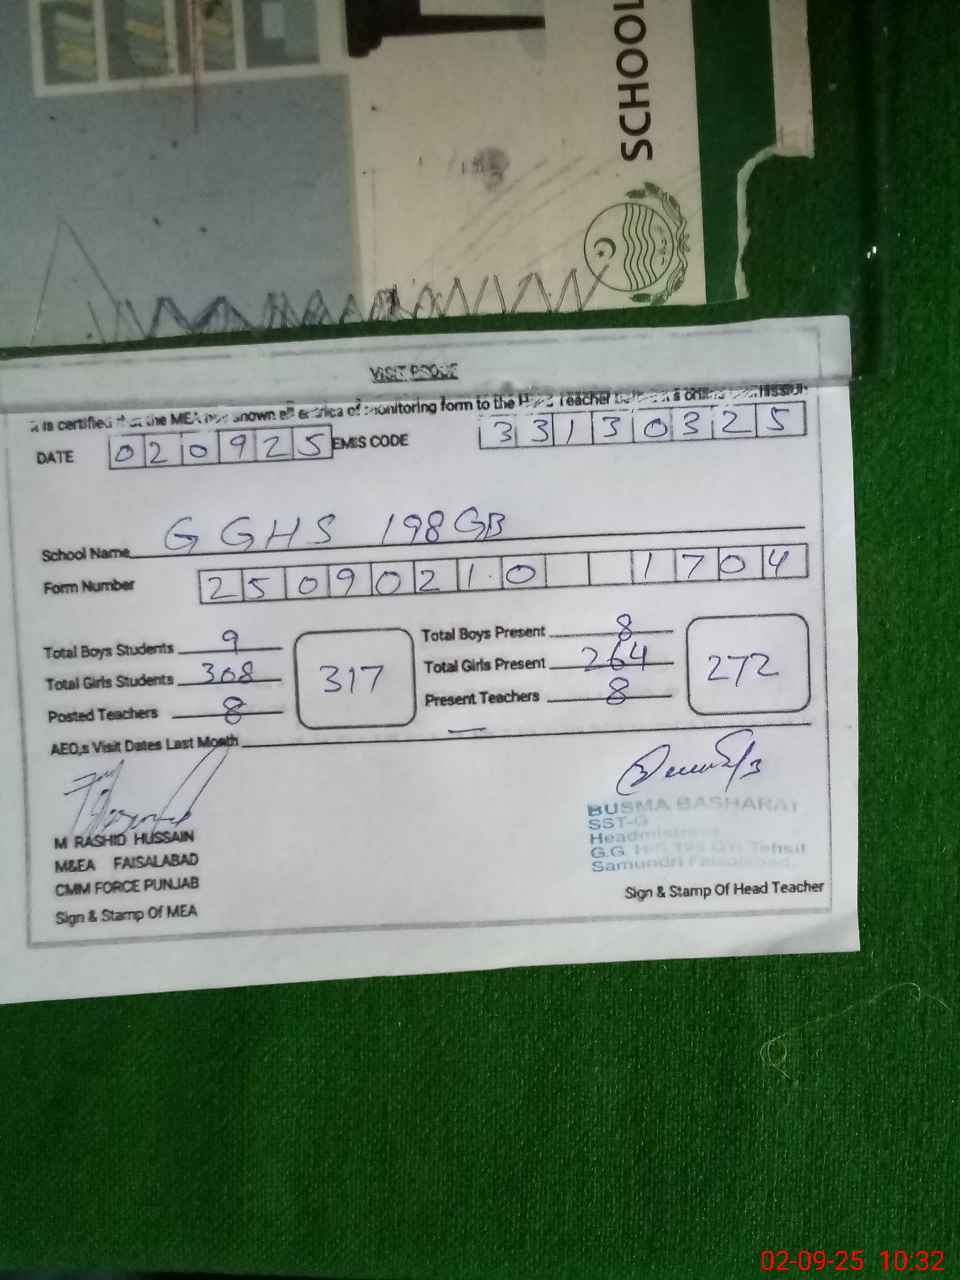 SCHOOL
VISIT PROOF
is certified the MEA shown all entries of monitoring form to the Teacher
DATE 020925 EMIS CODE 33130325
School Name G GHS 198 GB
Form Number 25090210 1704
Total Boys Students 9
Total Girls Students 308
Posted Teachers 8
317
Total Boys Present 8
Total Girls Present 264
Present Teachers 8
272
AEO,s Visit Dates Last Month —
M RASHID HUSSAIN
M&EA FAISALABAD
CMM FORCE PUNJAB
Sign & Stamp Of MEA
BUSMA BASHARAT
SST-G
Headmistress
G.G. H/S 198 Tehsil
Samundri Faisalabad.
Sign & Stamp Of Head Teacher
02-09-25 10:32